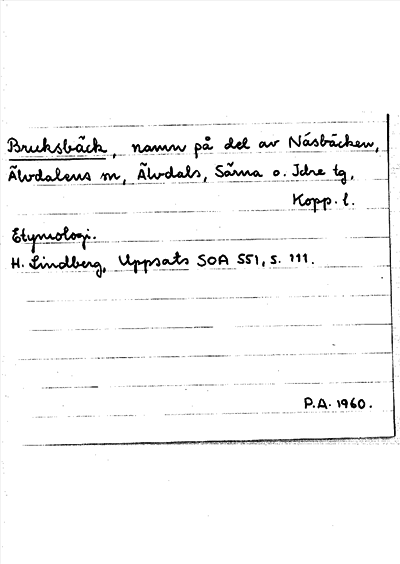 Bruksbäck, namn på del av Näsbäcken,
Älvdalens sn, Älvdals, Särna o. Idre tg,
Kopp. l.
Etymologi.
H. Lindberg, Uppsats SOA 551, s. 111.
P.A. 1960.